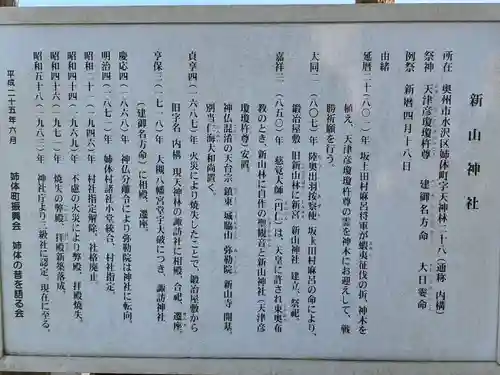 新山神社
所在　奥州市水沢区姉体町字天神林二十八（通称　内構）
祭神　天津彦瓊瓊杵尊　　建御名方命　　大日孁命
例祭　新暦四月十八日
由緒
延暦二十（八〇一）年　坂上田村麻呂将軍が蝦夷征伐の折、神木を
植え、天津彦瓊瓊杵尊の霊を神木にお迎えして、戦
勝祈願を行う。
大同二（八〇七）年　陸奥出羽按察使　坂上田村麻呂の命により、
鍛冶屋敷　旧新山林に新宮　新山神社　建立、祭祀。
嘉祥三（八五〇）年　慈覚大師（円仁）は、天皇に許され東奥布
教のとき、新山林に自作の聖観音と新山神社（天津彦
瓊瓊杵尊）安置。
神仏混淆の天台宗　鎮東　城脇山　弥勒院　新山寺　開基。
別当　仁海大和尚置く。
貞享四（一六八七）年　火災により焼失したことで、鍛冶屋敷から
旧字名　内構　現天神林の諏訪社に相殿　合祀、遷座。
享保三（一七一八）年　大槻八幡宮堂宇大破につき、諏訪神社
（建御名方命）に相殿、遷座。
慶応四（一八六八）年　神仏分離令により弥勒院は神社に転向。
明治四（一八七一）年　姉体村諸社小堂統合、村社指定。
昭和二十一（一九四六）年　村社指定解除、社格廃止
昭和四十四（一九六九）年　不慮の火災により弊殿、拝殿焼失。
昭和四十六（一九七一）年　焼失の弊殿、拝殿新築落成。
昭和五十八（一九八三）年　神社庁より三級社に認定、現在に至る。
平成二十五年六月
姉体町振興会　姉体の昔を語る会